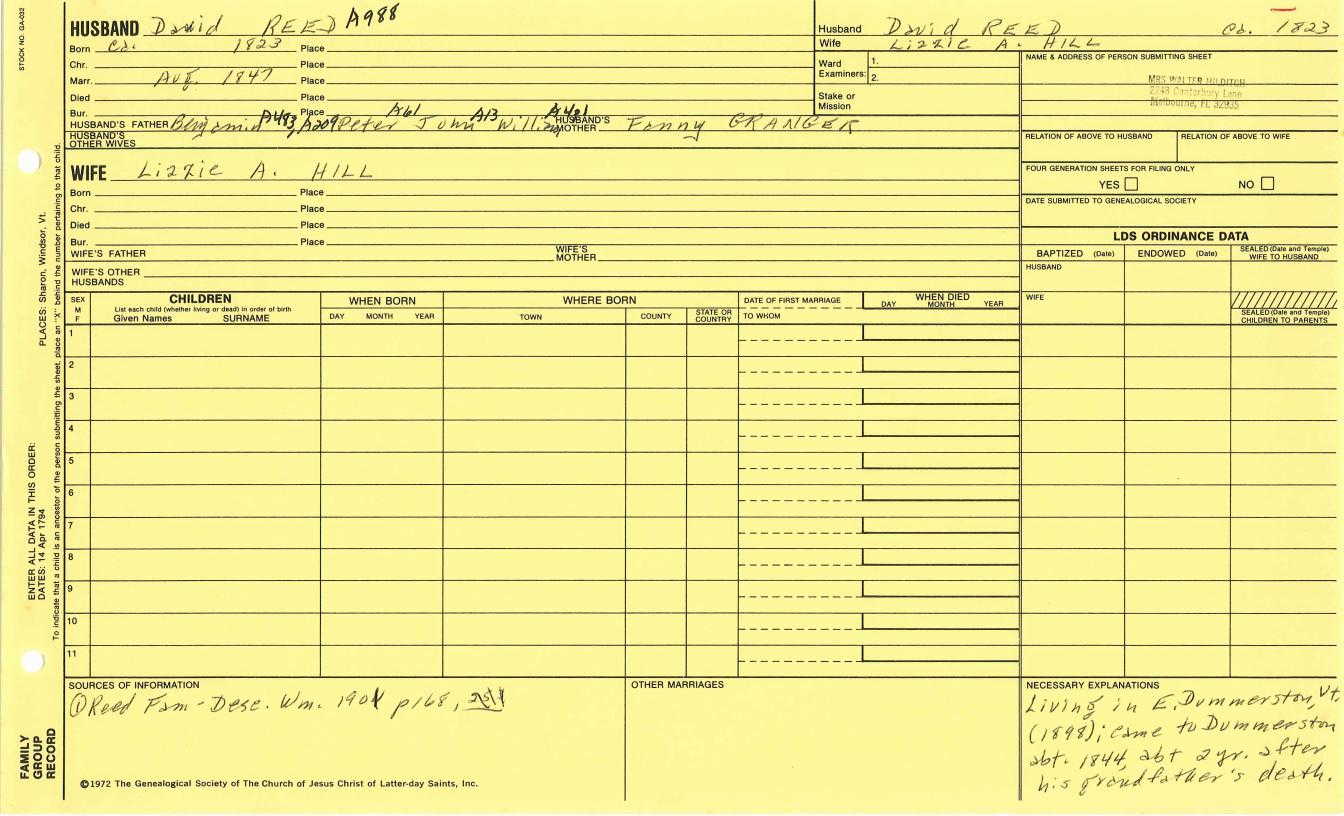 STOCK NO. GA-032
HUSBAND David REED A988
Born ca. 1823 Place
Chr. Place
Marr. Aug. 1847 Place
Died Place
Bur. Place
HUSBAND'S FATHER Benjamin A483, A209 Peter A61 John A13 William A421 HUSBAND'S MOTHER Fanny GRANGER
HUSBAND'S OTHER WIVES
WIFE Lizzie A. HILL
Born Place
Chr. Place
Died Place
Bur. Place
WIFE'S FATHER WIFE'S MOTHER
WIFE'S OTHER HUSBANDS
Husband David REED ca. 1823
Wife Lizzie A. HILL
Ward Examiners: 1. 2.
Stake or Mission
NAME & ADDRESS OF PERSON SUBMITTING SHEET
MRS WALTER HILDITCH
2248 Canterbury Lane
Melbourne, FL 32935
RELATION OF ABOVE TO HUSBAND RELATION OF ABOVE TO WIFE
FOUR GENERATION SHEETS FOR FILING ONLY
YES NO
DATE SUBMITTED TO GENEALOGICAL SOCIETY
LDS ORDINANCE DATA
BAPTIZED (Date) ENDOWED (Date) SEALED (Date and Temple) WIFE TO HUSBAND
HUSBAND
WIFE
SEALED (Date and Temple) CHILDREN TO PARENTS
SEX M F
CHILDREN
List each child (whether living or dead) in order of birth
Given Names SURNAME
WHEN BORN
DAY MONTH YEAR
WHERE BORN
TOWN COUNTY STATE OR COUNTRY
DATE OF FIRST MARRIAGE
TO WHOM
WHEN DIED
DAY MONTH YEAR
1
2
3
4
5
6
7
8
9
10
11
ENTER ALL DATA IN THIS ORDER:
DATES: 14 Apr 1794 PLACES: Sharon, Windsor, Vt.
To indicate that a child is an ancestor of the person submitting the sheet, place an "X" behind the number pertaining to that child.
FAMILY GROUP RECORD
SOURCES OF INFORMATION
① Reed Fam - Desc. Wm. 1901 p168,
©1972 The Genealogical Society of The Church of Jesus Christ of Latter-day Saints, Inc.
OTHER MARRIAGES
NECESSARY EXPLANATIONS
Living in E. Dummerston, Vt.
(1898); came to Dummerston
abt. 1844, abt 2 yr. after
his grandfather's death.